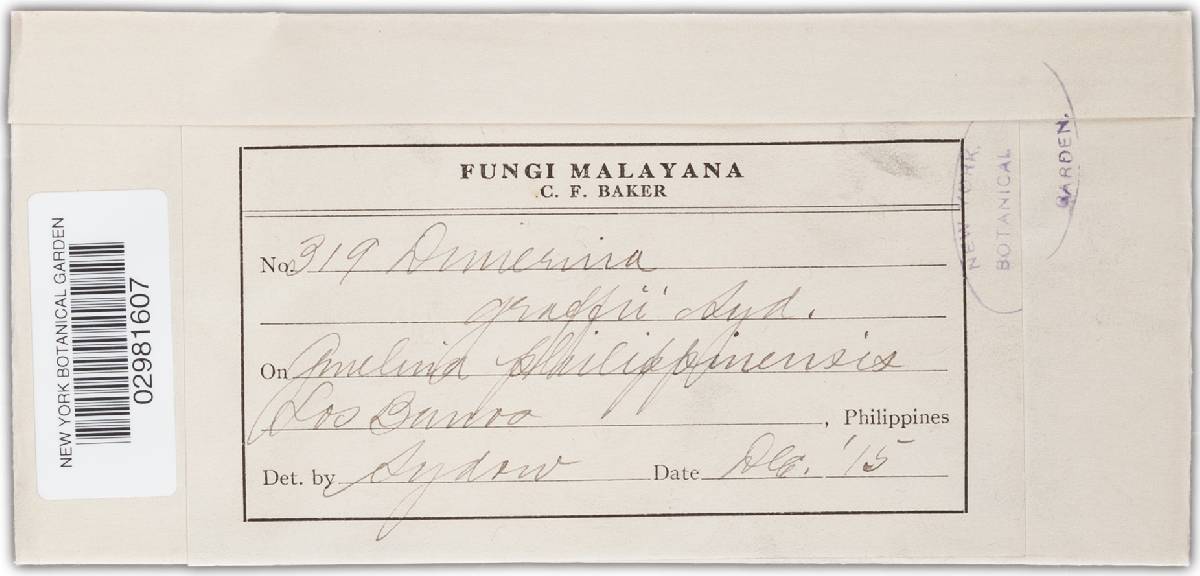 FUNGI MALAYANA
C. F. BAKER
No. 319 Dimerina
graffii Syd.
On Gmelina philippinensis
Los Banos, Philippines
Det. by Sydow Date Dec. '15
NEW YORK BOTANICAL GARDEN
02981607
NEW YORK
BOTANICAL
GARDEN.